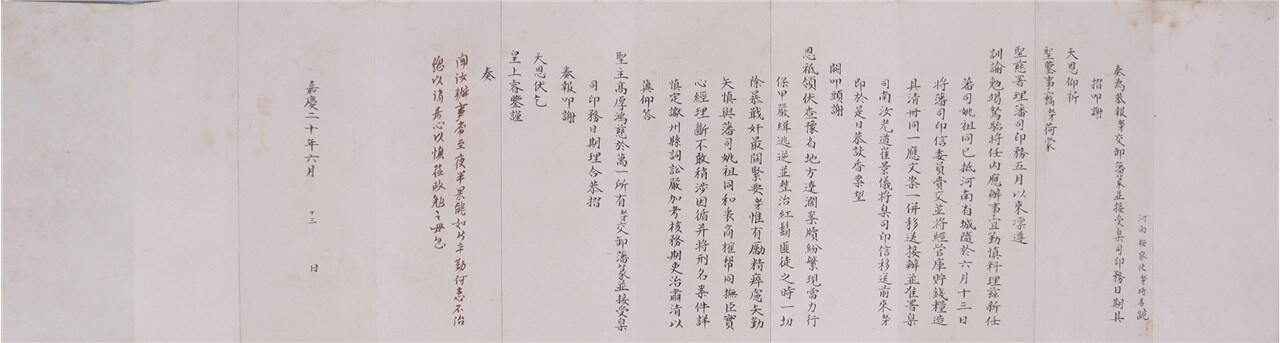 河南按察使奴才琦善跪
奏為恭報奴才交卸藩篆並接受臬司印務日期具
摺叩謝
天恩仰祈
聖鑒事竊奴才荷蒙
聖慈署理藩司印務五月以來凜遵
訓諭勉竭駑駘將任內應辦事宜勤慎料理茲新任
藩司姚祖同已抵河南省城隨於六月十三日
將藩司印信委員賫交並將經管庫貯錢糧造
具清冊同一應文案一併移送接辦並准署臬
司南汝光道崔景儀將臬司印信移送前來奴才
即於是日恭設香案望
闕叩頭謝
恩祗領伏查豫省地方遼濶案牘紛繁現當力行
保甲嚴緝逃逆並整治紅鬍匪徒之時一切
除暴戢奸最關緊要奴才惟有勵精瘁慮矢勤
矢慎與藩司姚祖同和衷商榷幫同撫臣實
心經理斷不敢稍涉因循并將刑名案件詳
慎定讞州縣詞訟嚴加考核務期吏治肅清以
冀仰答
聖主高厚鴻慈於萬一所有奴才交卸藩篆並接受臬
司印務日期理合恭摺
奏報叩謝
天恩伏乞
皇上睿鑒謹
奏
聞汝辦事當至夜半果能如此之勤何患不治
總以清為心以慎蒞政勉之毋怠
嘉慶二十年六月 十三 日